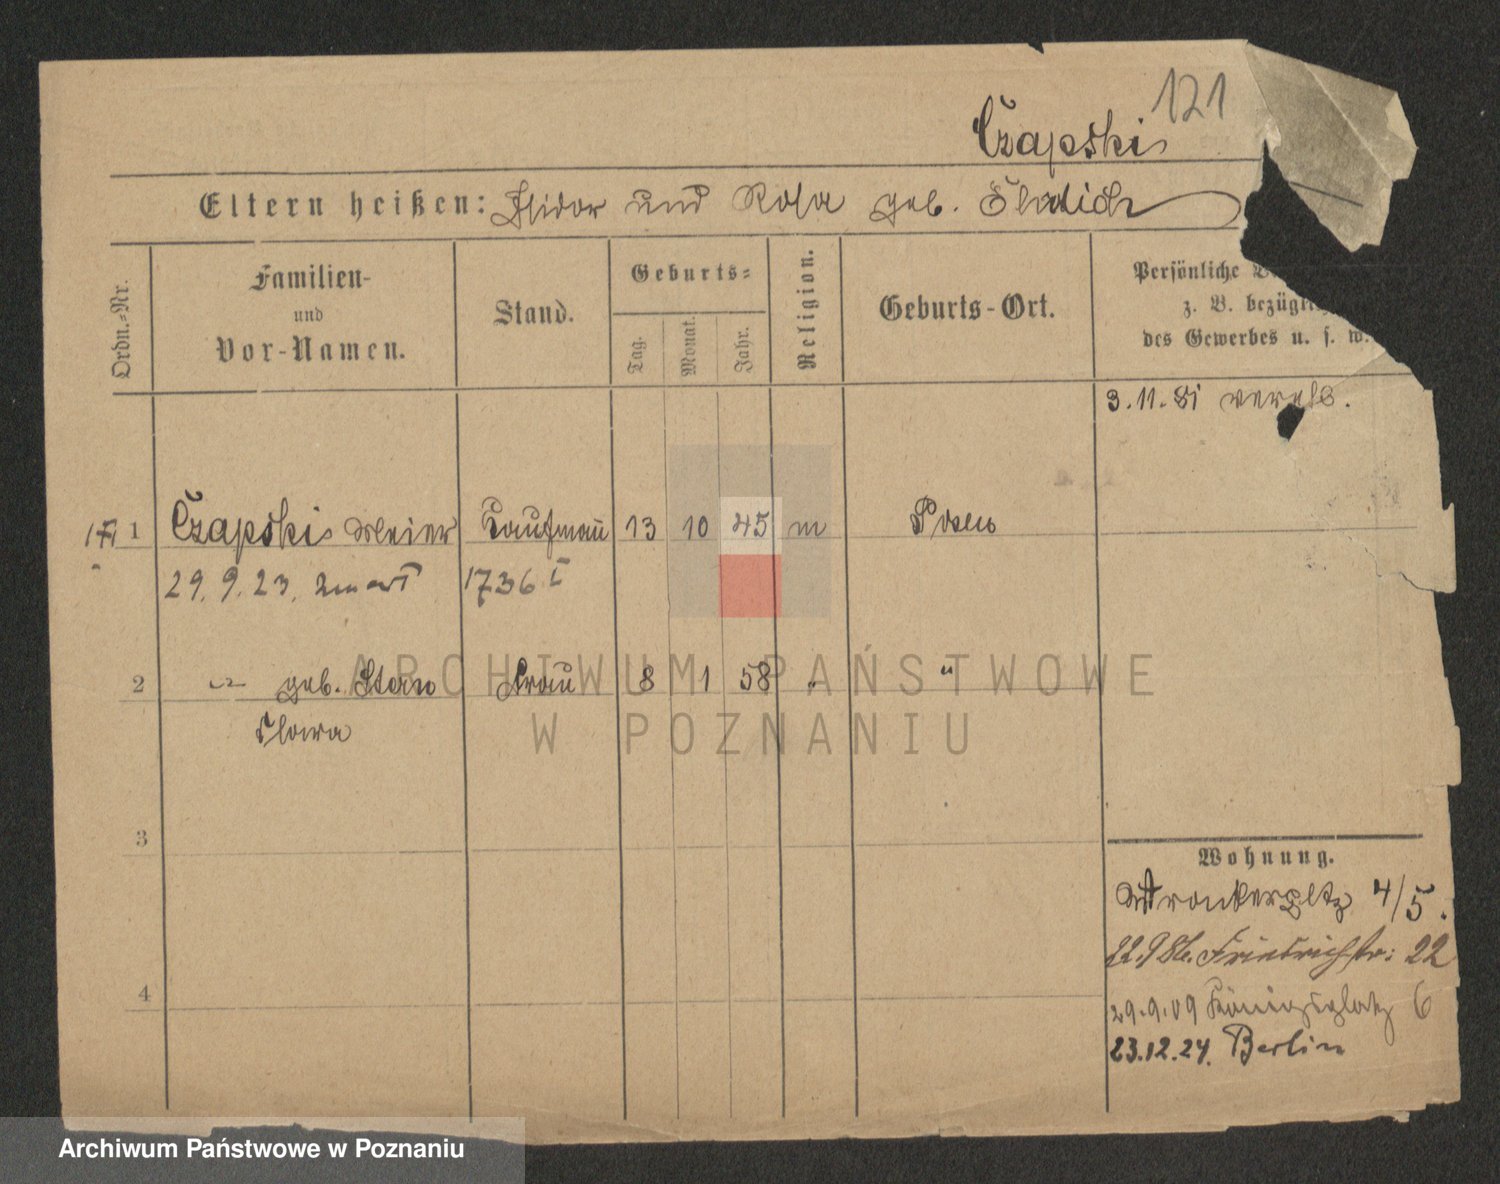 121
Czapski
Eltern heißen: Isidor und Rosa geb.
Ordn.-Nr.
Familien- und Vor-Namen.
Stand.
Geburts-
Tag.
Monat.
Jahr.
Religion.
Geburts-Ort.
Persönliche
z. B.
des Gewerbes u. s. w.
3.11.81 verehl.
1 Czapski Meier Kaufmañ 13 10 45 m Posen
29. 9. 23. 1736 I
2 geb. Stern Frau 8 1 58 " "
Flora
3
4
Wohnung.
Wronkerpltz 4/5.
22.9 86. Friedrichstr: 22
29.9.09 Königsplatz 6
23.12.24. Berlin
ARCHIWUM PAŃSTWOWE
W POZNANIU
Archiwum Państwowe w Poznaniu